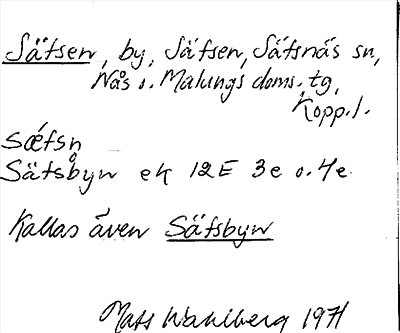 Säfsen, by, Säfsen, Säfsnäs sn,
Nås o. Malungs doms. tg,
Kopp. l.
sæfsn
Säfsbyn ek 12E 3e o. 4e
Kallas även Säfsbyn
Mats Wahlberg 1971